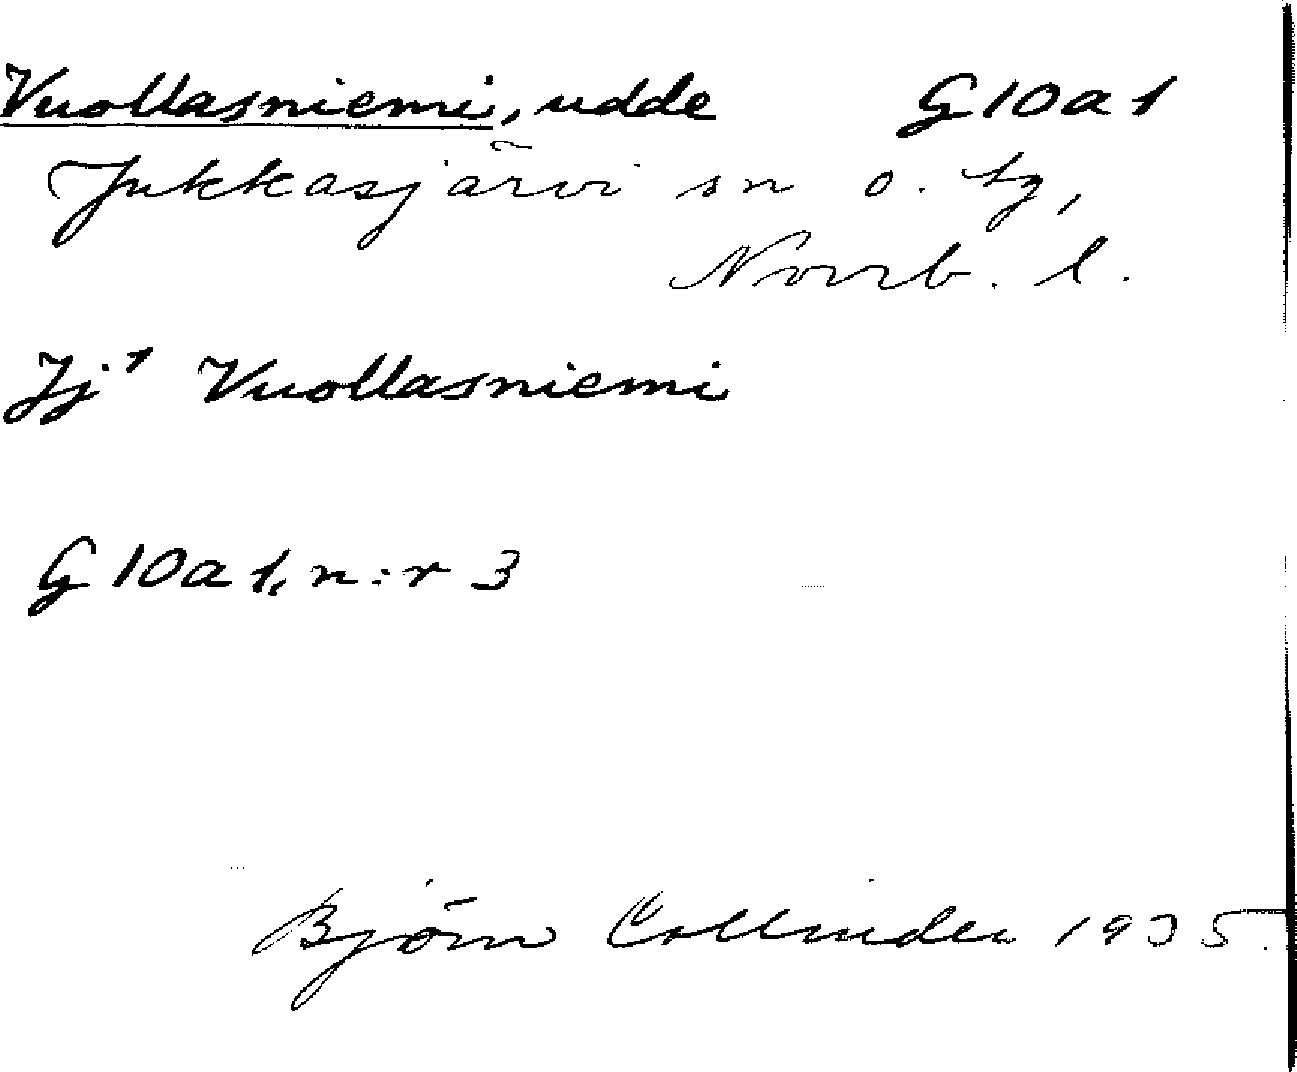 Vuollasniemi, udde G 10 a 1
Jukkasjärvi sn o. tg,
Norrb. l.
Jj1 Vuollasniemi
G 10 a 1, n:r 3
Björn Collinder 1935.